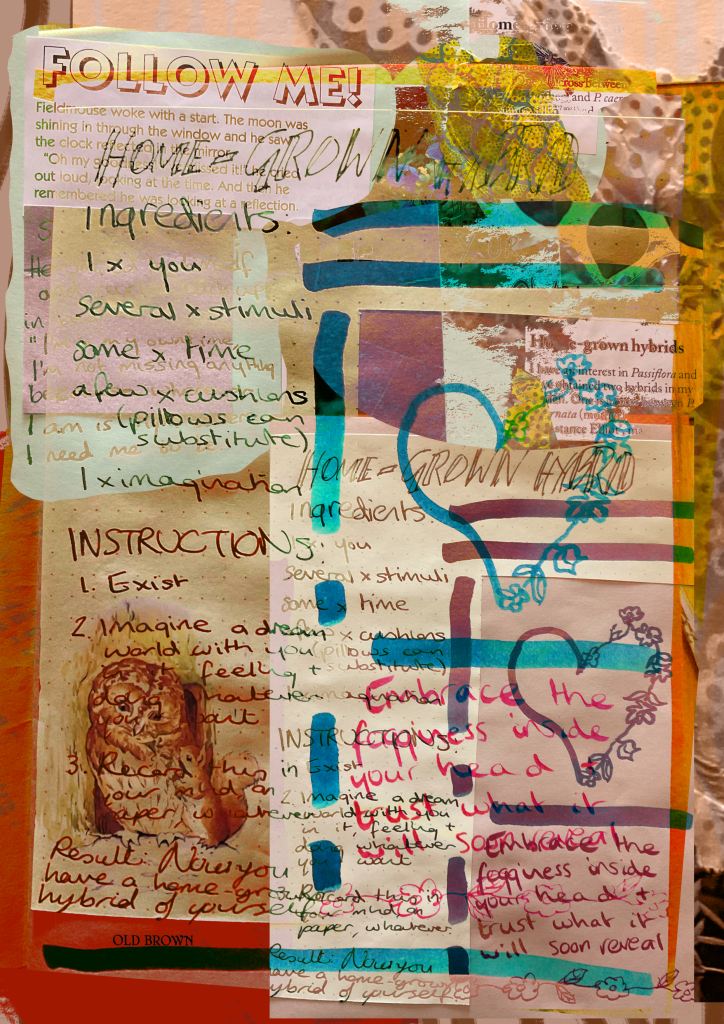 FOLLOW ME!
Fieldmouse woke with a start. The moon was
shining in through the window and he saw
the clock reflected in the mirror.
"Oh my goodness I missed it he cried
out loud, looking at the time. And then he
remembered he was looking at a reflection.
Home
cross between
and P. caer
HOME-GROWN HYBRID
Ingredients:
1 x you
several x stimuli
some x time
a few x cushions
(pillows can
substitute)
1 x imagination
my own time
I'm not missing anything
I am
I need me
INSTRUCTIONS
1. Exist
2. Imagine a dream
world with you
in it feeling +
doing whatever
you want
3. Record this in
your mind on
paper, whatever
Result: Now you
have a home-grown
hybrid of yourself
OLD BROWN
Home-grown hybrids
I have an interest in Passiflora and
have obtained two hybrids in my
One is between P.
HOME-GROWN HYBRID
Ingredients
you
several x stimuli
some x time
x cushions
(pillows can
substitute)
INSTRUCTIONS
Exist
2. Imagine a dream
world with you
in it feeling +
doing whatever
you want
3. Record this in
your mind on
paper, whatever
Result: Now you
have a home-grown
hybrid of yourself
Embrace the
fogginess inside
your head +
trust what it
will soon reveal
Embrace the
fogginess inside
your head +
trust what it
will soon reveal